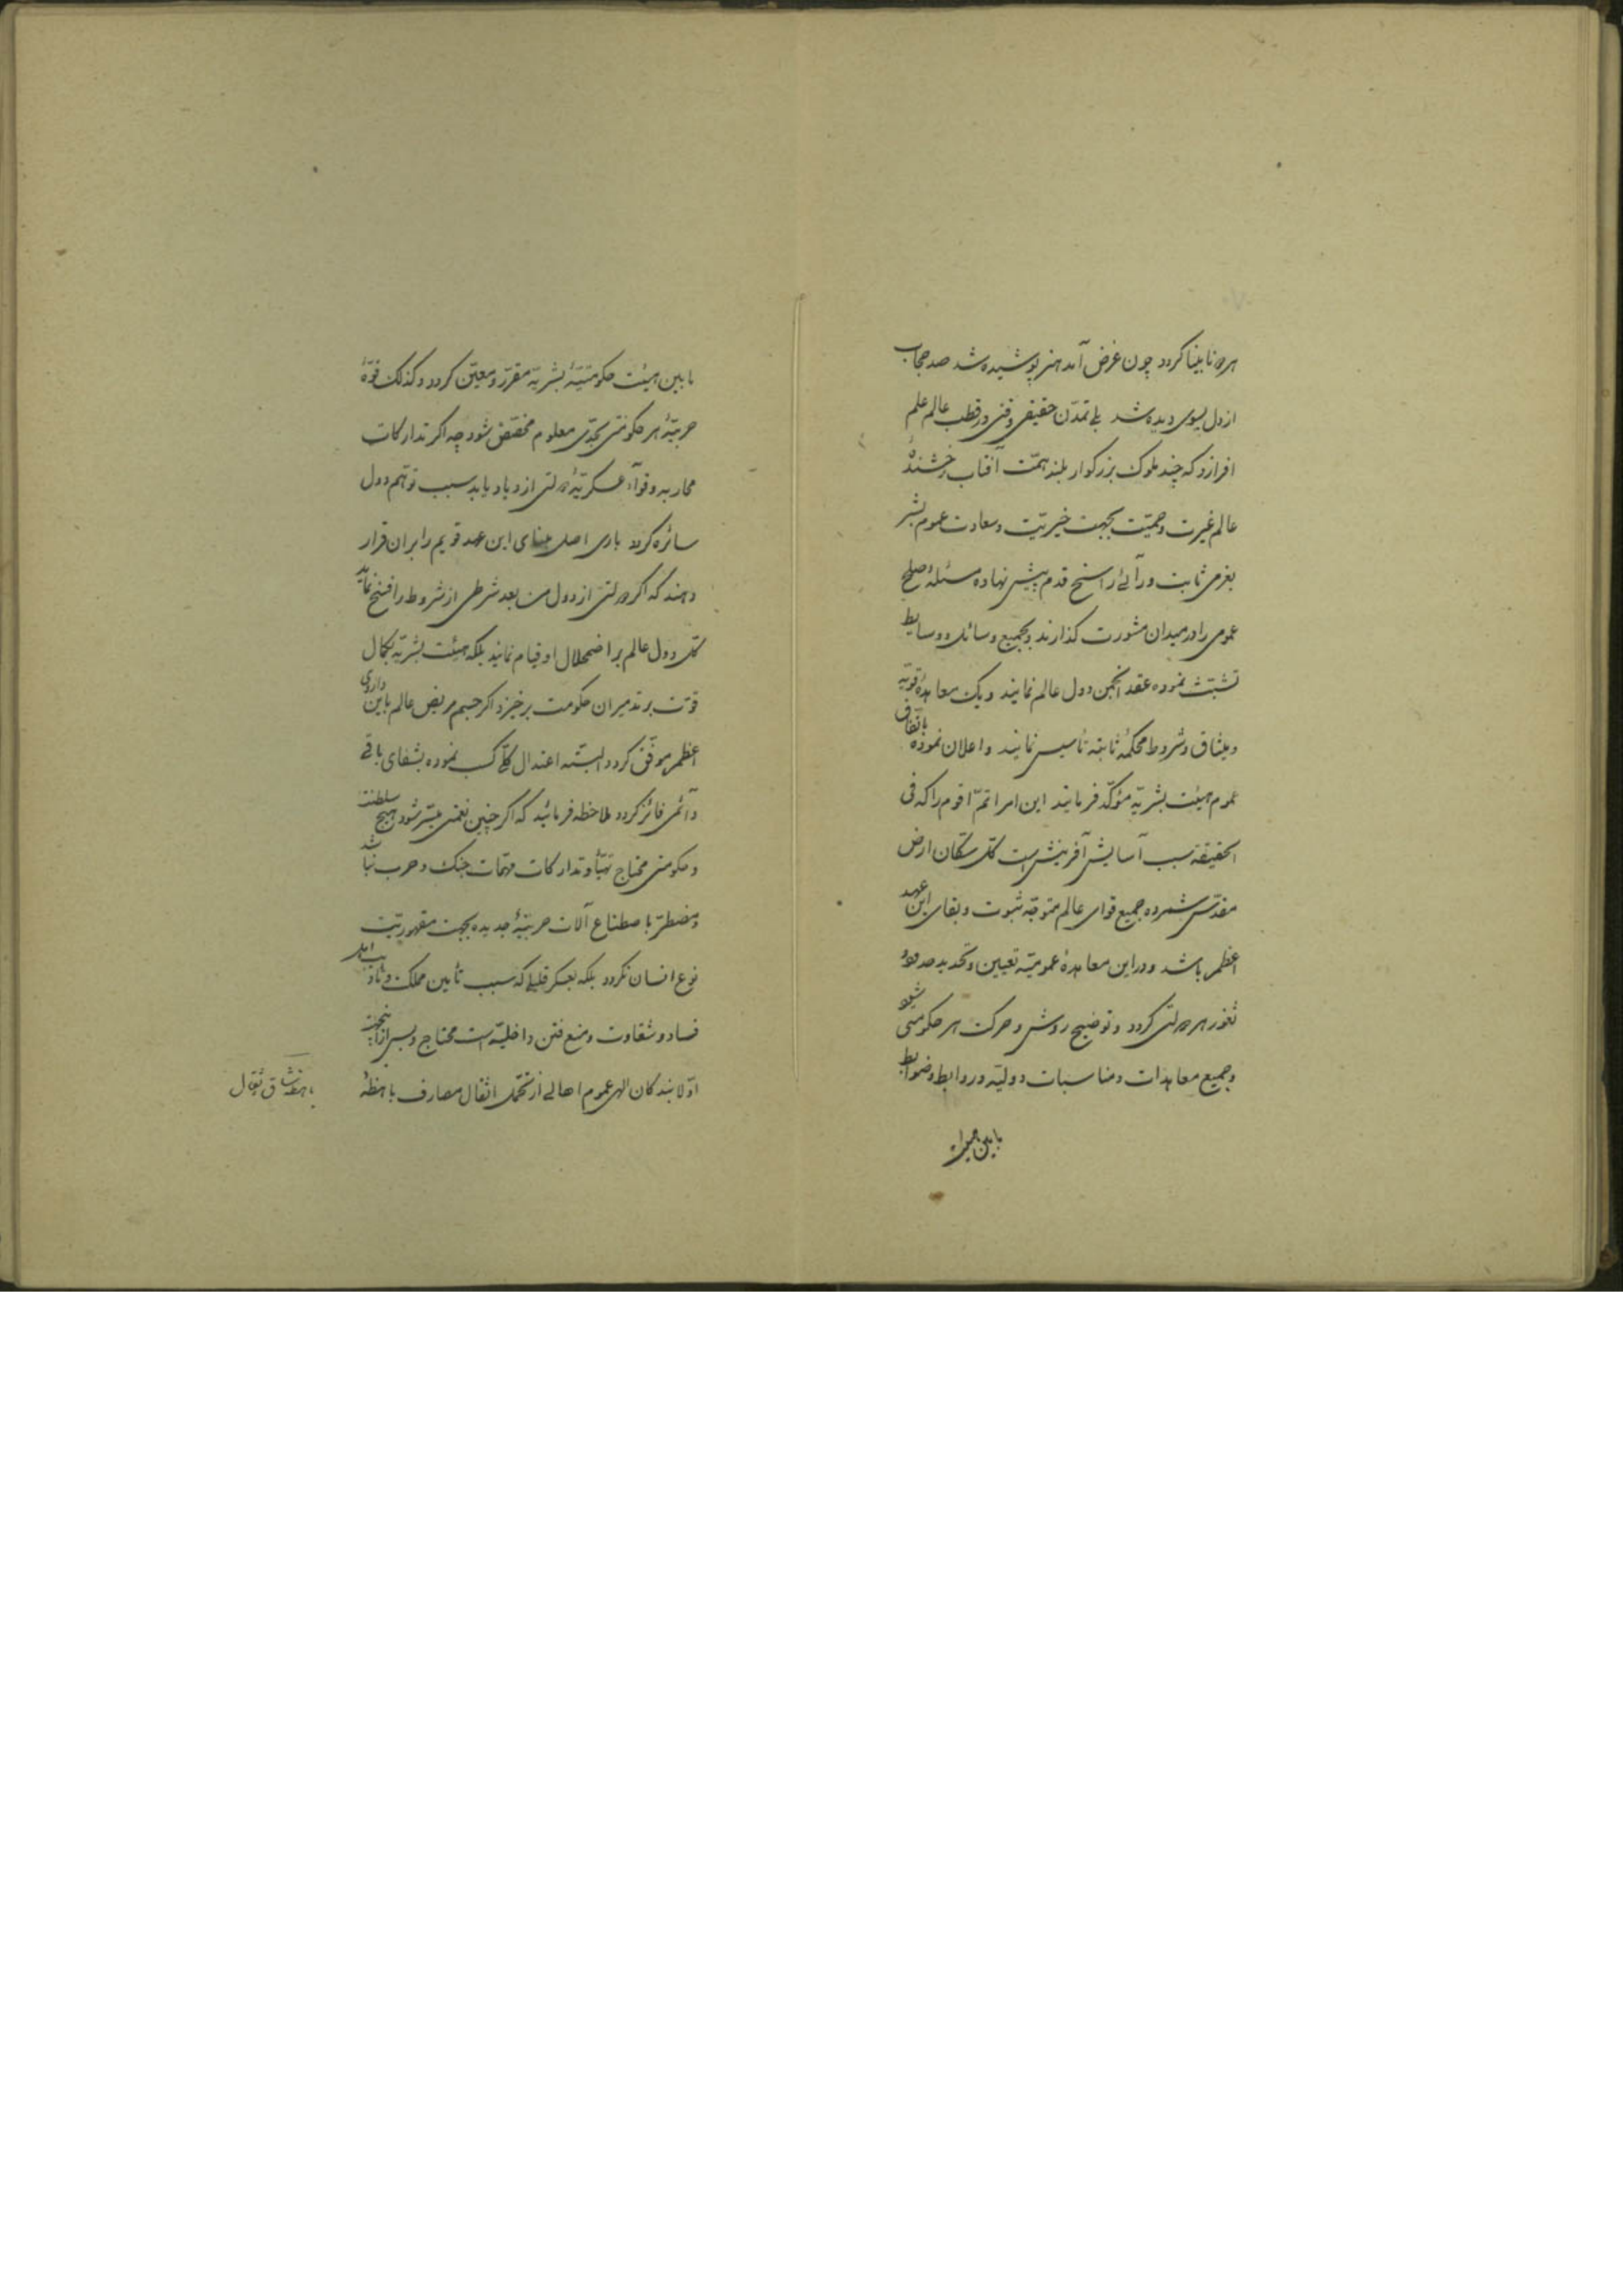 هر دو نابینا کردد چون غرض آمد هنر پوشیده شد صد حجاب
از دل بسوی دیده شد بلی تمدّن حقیقی وقتی در قطب عالم علم
افرازد که چند ملوک بزرکوار بلند همّت آفتاب رخشندهٔ
عالم غیرت و حمیّت بجهت خیریّت و سعادت عموم بشر
بعزمی ثابت و رأئی راسخ قدم پیش نهاده مسئلهٔ صلح
عمومی را در میدان مشورت کذارند و بجمیع وسائل و وسایط
تشبّث نموده عقد انجمن دول عالم نمایند و یک معاهدهٔ قویّه
و میثاق و شروط محکمهٔ ثابته تأسیس نمایند و اعلان نموده باتّفاق
عموم هیئت بشریّه مؤکّد فرمایند این امر اتمّ اقوم را که فی
الحقیقه سبب آسایش آفرینش است کلّ سکّان ارض
مقدّس شمرده جمیع قوای عالم متوجّه ثبوت و بقای این عهد
اعظم باشد و در این معاهدهٔ عمومیّه تعیین و تحدید حدود و
ثغور هر دولتی کردد و توضیح روش و حرکت هر حکومتی شود
و جمیع معاهدات و مناسبات دولیّه و روابط و ضوابط
مابین هیئت
مابین هیئت حکومتیّهٔ بشریّه مقرّر و معیّن کردد و کذلک قوّهٔ
حربیّهٔ هر حکومتی بحدّی معلوم مخصّص شود چه اکر تدارکات
محاربه و قوآء عسکریّهٔ دولتی ازدیاد یابد سبب توهّم دول
سائره کردد باری اصل مبنای این عهد قویم را بر آن قرار
دهند که اکر دولتی از دول من بعد شرطی از شروط را فسخ نماید
کلّ دول عالم بر اضمحلال او قیام نمایند بلکه هیئت بشریّه بکمال
قوّت بر تدمیر آن حکومت برخیزد اکر جسم مریض عالم باین داروی
اعظم موفّق کردد البتّه اعتدال کلّی کسب نموده بشفای باقی
دآئمی فائز کردد ملاحظه فرمائید که اکر چنین نعمتی میسّر شود هیچ سلطنت
و حکومتی محتاج تهیّأ و تدارکات مهمّات جنک و حرب نباشد
و مضطرّ باصطناع آلات حربیّهٔ جدیده بجهت مقهوریّت
نوع انسان نکردد بلکه بعسکر قلیلی که سبب تأمین مملکت و تأدیب اهل
فساد و شقاوت و منع فتن داخلیّه است محتاج و بس از اینجهت
اوّلا بندکان الهی عموم اهالی از تحمّل اثقال مصارف باهظهٔ
باهظه شاق ثقال